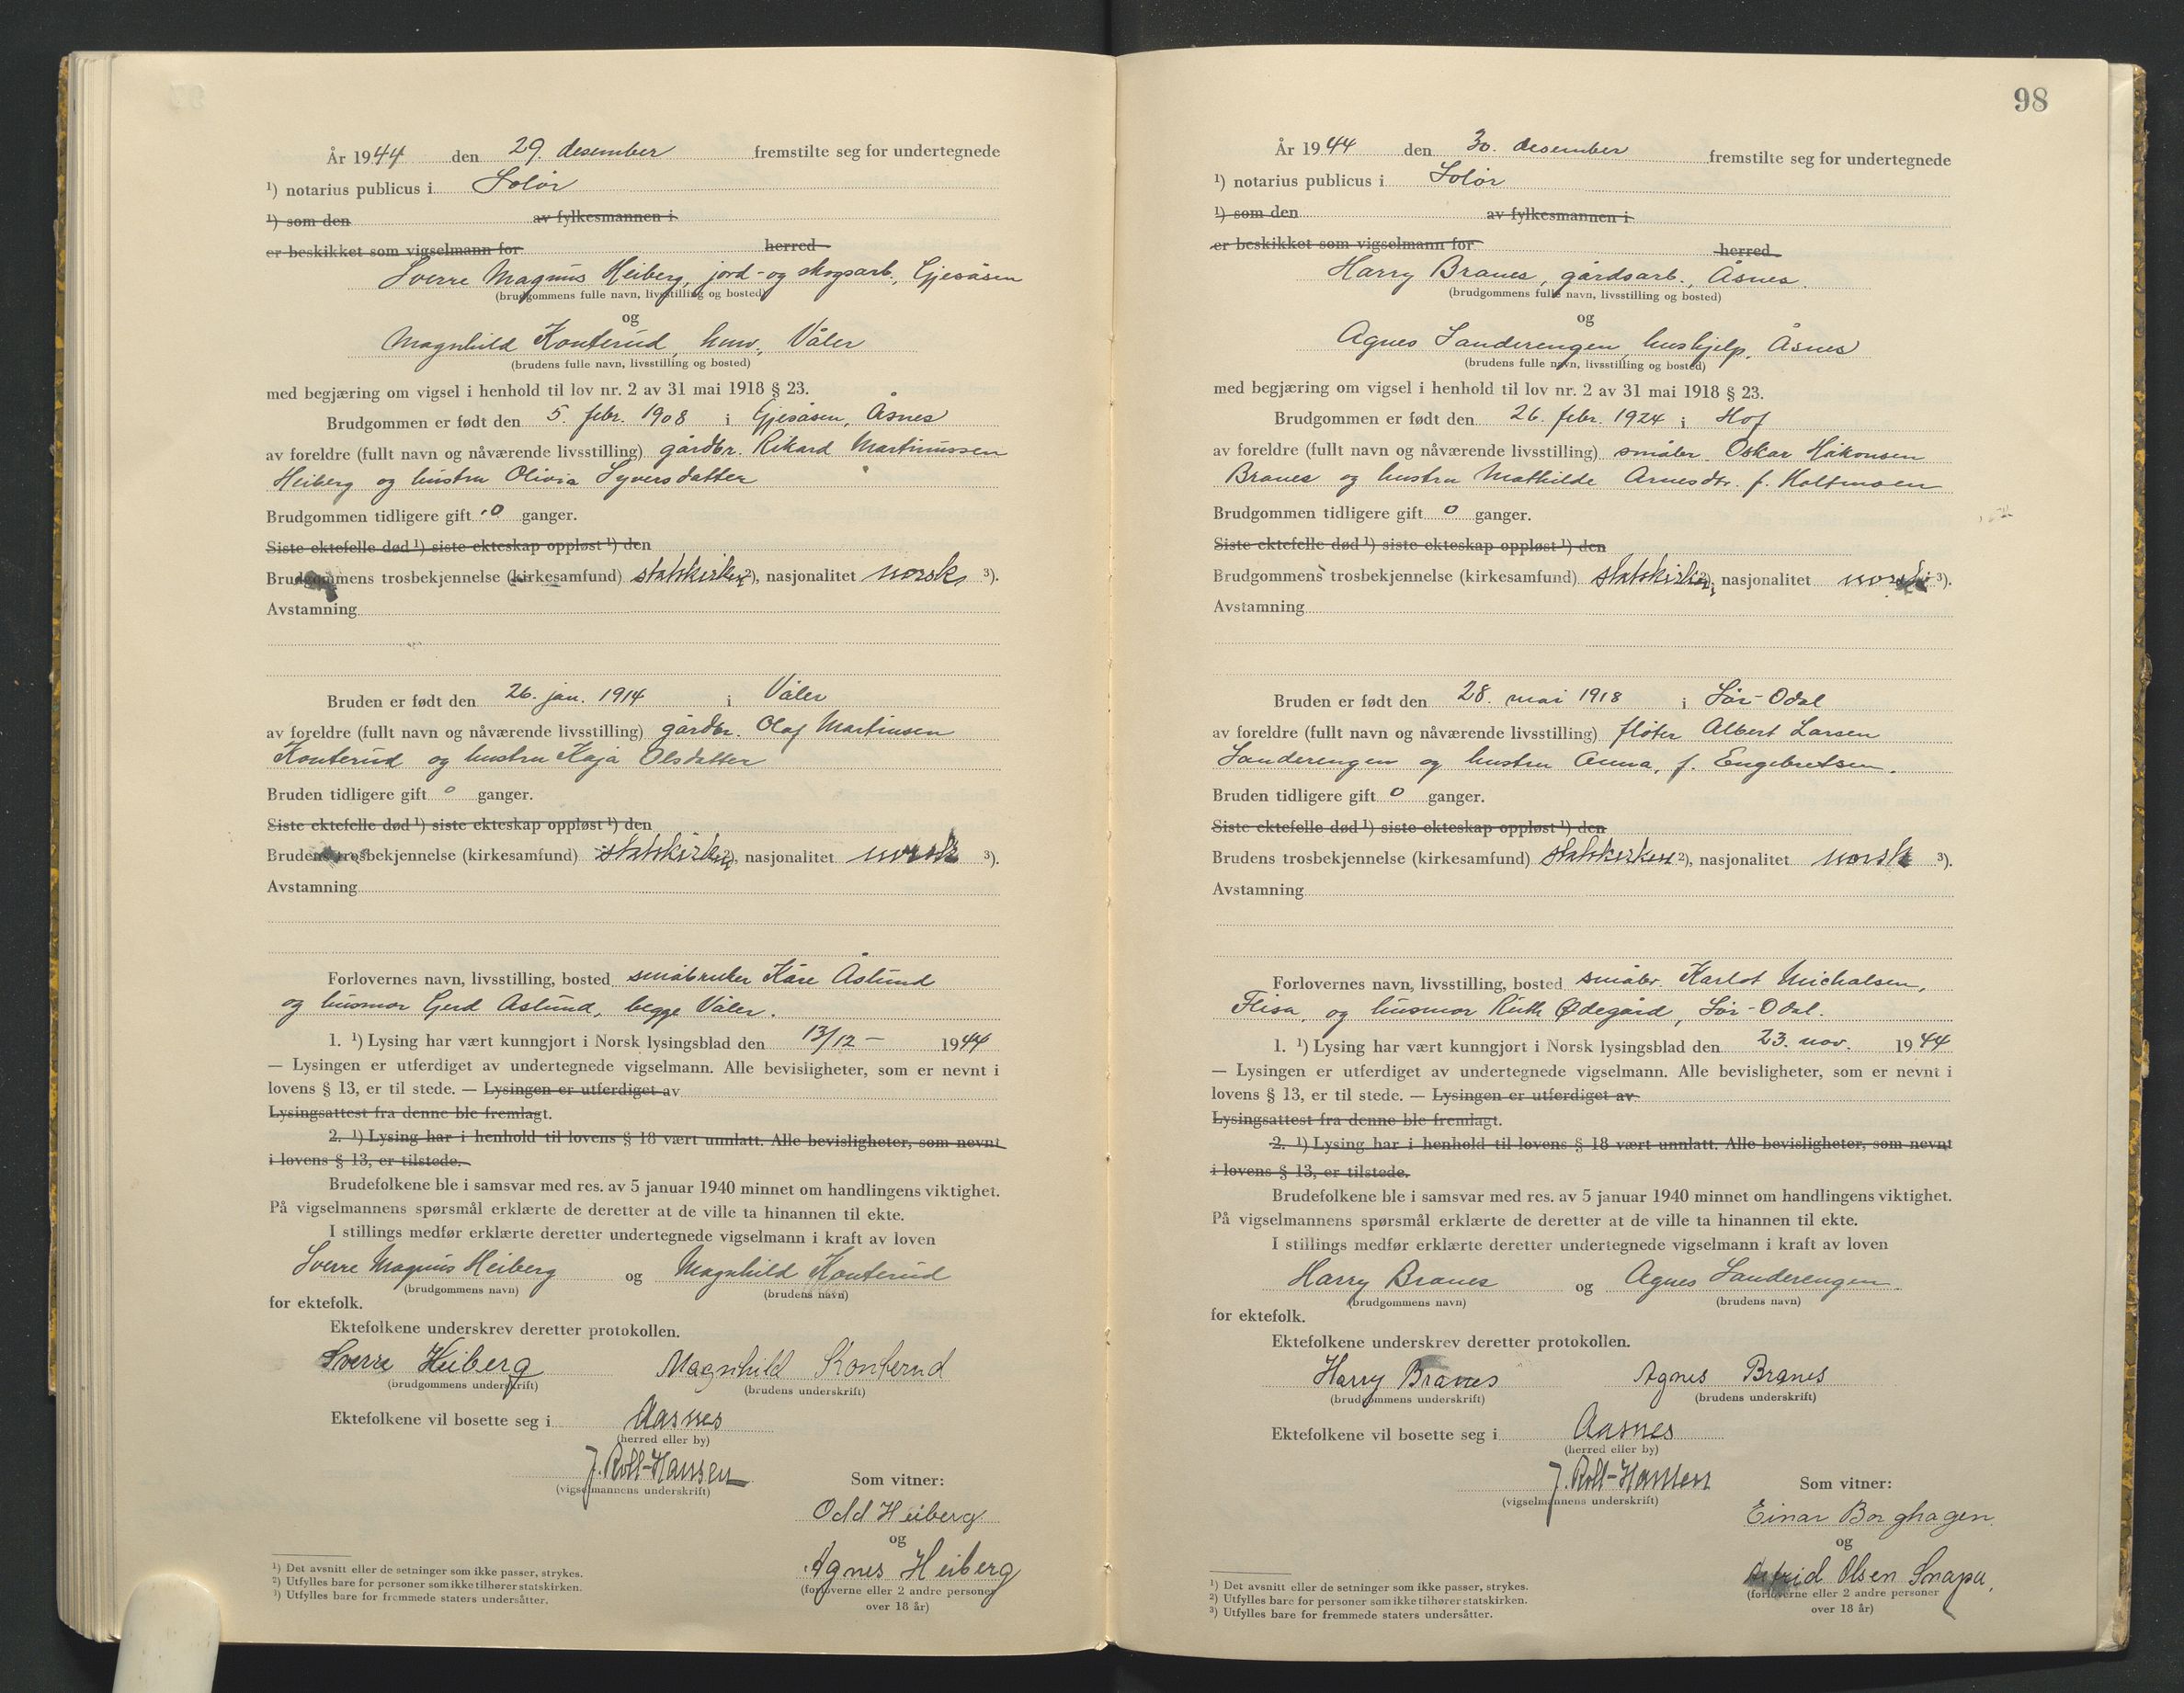 År 1944 den 29. desember fremstilte seg for undertegnede
¹) notarius publicus i Solør
¹) som den av fylkesmannen i
er beskikket som vigselmann for herred
Sverre Magnus Heiberg, jord- og skogsarb., Gjesåsen
(brudgommens fulle navn, livsstilling og bosted)
og
Magnhild Konterud, husv., Våler
(brudens fulle navn, livsstilling og bosted)
med begjæring om vigsel i henhold til lov nr. 2 av 31 mai 1918 § 23.
Brudgommen er født den 5. febr. 1908 i Gjesåsen, Åsnes
av foreldre (fullt navn og nåværende livsstilling) gårdbr. Rikard Martinussen
Heiberg og hustru Olivia Syversdatter
Brudgommen tidligere gift 0 ganger.
Siste ektefelle død ¹) siste ekteskap oppløst ¹) den
Brudgommens trosbekjennelse (kirkesamfund) statskirken ²), nasjonalitet norsk ³).
Avstamning
Bruden er født den 26. jan. 1914 i Våler
av foreldre (fullt navn og nåværende livsstilling) gårdbr. Olaf Martinsen
Konterud og hustru Kaja Olsdatter
Bruden tidligere gift 0 ganger.
Siste ektefelle død ¹) siste ekteskap oppløst ¹) den
Brudens trosbekjennelse (kirkesamfund) statskirken ²), nasjonalitet norsk ³).
Avstamning
Forlovernes navn, livsstilling, bosted småbruker Kåre Åslund
og husmor Gerd Aslund, begge Våler.
1. ¹) Lysing har vært kunngjort i Norsk lysingsblad den 13/12 – 1944
— Lysingen er utferdiget av undertegnede vigselmann. Alle bevisligheter, som er nevnt i
lovens § 13, er til stede. — Lysingen er utferdiget av
Lysingsattest fra denne ble fremlagt.
2. ¹) Lysing har i henhold til lovens § 18 vært unnlatt. Alle bevisligheter, som nevnt
i lovens § 13, er tilstede.
Brudefolkene ble i samsvar med res. av 5 januar 1940 minnet om handlingens viktighet.
På vigselmannens spørsmål erklærte de deretter at de ville ta hinannen til ekte.
I stillings medfør erklærte deretter undertegnede vigselmann i kraft av loven
Sverre Magnus Heiberg og Magnhild Konterud
(brudgommens navn) (brudens navn)
for ektefolk.
Ektefolkene underskrev deretter protokollen.
Sverre Heiberg Magnhild Konterud
(brudgommens underskrift) (brudens underskrift)
Ektefolkene vil bosette seg i Aasnes
(herred eller by)
J. Roll-Hansen
(vigselmannens underskrift)
Som vitner:
Odd Heiberg
og
Agnes Heiberg
(forloverne eller 2 andre personer
over 18 år)
¹) Det avsnitt eller de setninger som ikke passer, strykes.
²) Utfylles bare for personer som ikke tilhører statskirken.
³) Utfylles bare for fremmede staters undersåtter.
98
År 1944 den 30. desember fremstilte seg for undertegnede
¹) notarius publicus i Solør
¹) som den av fylkesmannen i
er beskikket som vigselmann for herred
Harry Branes, gårdsarb., Åsnes.
(brudgommens fulle navn, livsstilling og bosted)
og
Agnes Sanderengen, hushjelp, Åsnes
(brudens fulle navn, livsstilling og bosted)
med begjæring om vigsel i henhold til lov nr. 2 av 31 mai 1918 § 23.
Brudgommen er født den 26. febr. 1924 i Hof
av foreldre (fullt navn og nåværende livsstilling) småbr. Oskar Håkonsen
Branes og hustru Mathilde Arnesdtr. f. Holtmoen
Brudgommen tidligere gift 0 ganger.
Siste ektefelle død ¹) siste ekteskap oppløst ¹) den
Brudgommens trosbekjennelse (kirkesamfund) statskirken ²), nasjonalitet norsk ³).
Avstamning
Bruden er født den 28. mai 1918 i Sør-Odal
av foreldre (fullt navn og nåværende livsstilling) fløter Albert Larsen
Sanderengen og hustru Anna, f. Engebretsen.
Bruden tidligere gift 0 ganger.
Siste ektefelle død ¹) siste ekteskap oppløst ¹) den
Brudens trosbekjennelse (kirkesamfund) statskirken ²), nasjonalitet norsk ³).
Avstamning
Forlovernes navn, livsstilling, bosted småbr. Karlot Michalsen,
Flisa, og husmor Ruth Ødegård, Sør-Odal.
1. ¹) Lysing har vært kunngjort i Norsk lysingsblad den 23. nov. 1944
— Lysingen er utferdiget av undertegnede vigselmann. Alle bevisligheter, som er nevnt i
lovens § 13, er til stede. — Lysingen er utferdiget av
Lysingsattest fra denne ble fremlagt.
2. ¹) Lysing har i henhold til lovens § 18 vært unnlatt. Alle bevisligheter, som nevnt
i lovens § 13, er tilstede.
Brudefolkene ble i samsvar med res. av 5 januar 1940 minnet om handlingens viktighet.
På vigselmannens spørsmål erklærte de deretter at de ville ta hinannen til ekte.
I stillings medfør erklærte deretter undertegnede vigselmann i kraft av loven
Harry Branes og Agnes Sanderengen
(brudgommens navn) (brudens navn)
for ektefolk.
Ektefolkene underskrev deretter protokollen.
Harry Branes Agnes Branes
(brudgommens underskrift) (brudens underskrift)
Ektefolkene vil bosette seg i Aasnes
(herred eller by)
J. Roll-Hansen
(vigselmannens underskrift)
Som vitner:
Einar Borghagen
og
Astrid Olsen Snapa,
(forloverne eller 2 andre personer
over 18 år)
¹) Det avsnitt eller de setninger som ikke passer, strykes.
²) Utfylles bare for personer som ikke tilhører statskirken.
³) Utfylles bare for fremmede staters undersåtter.